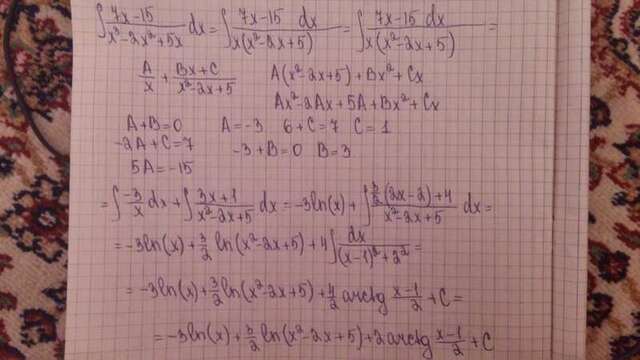 ∫ 7x-15 / x³-2x²+5x dx = ∫ 7x-15 dx / x(x²-2x+5) = ∫ 7x-15 dx / x(x²-2x+5) =
A/x + Bx+C / x²-2x+5 A(x²-2x+5)+Bx²+Cx
Ax²-2Ax+5A+Bx²+Cx
A+B=0 A=-3 6+C=7 C=1
-2A+C=7 -3+B=0 B=3
5A=-15
= ∫ -3/x dx + ∫ 3x+1 / x²-2x+5 dx = -3ln(x) + ∫ 3/2(2x-2)+4 / x²-2x+5 dx =
= -3ln(x) + 3/2 ln(x²-2x+5) + 4∫ dx / (x-1)²+2² =
= -3ln(x) + 3/2 ln(x²-2x+5) + 4/2 arctg x-1/2 + C =
= -3ln(x) + 3/2 ln(x²-2x+5) + 2 arctg x-1/2 + C